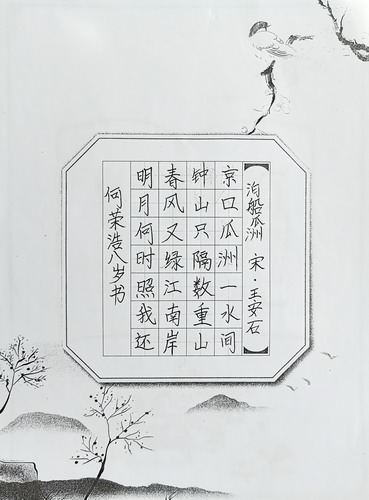 泊船瓜洲 宋·王安石
京口瓜洲一水间
钟山只隔数重山
春风又绿江南岸
明月何时照我还
何荣浩八岁书